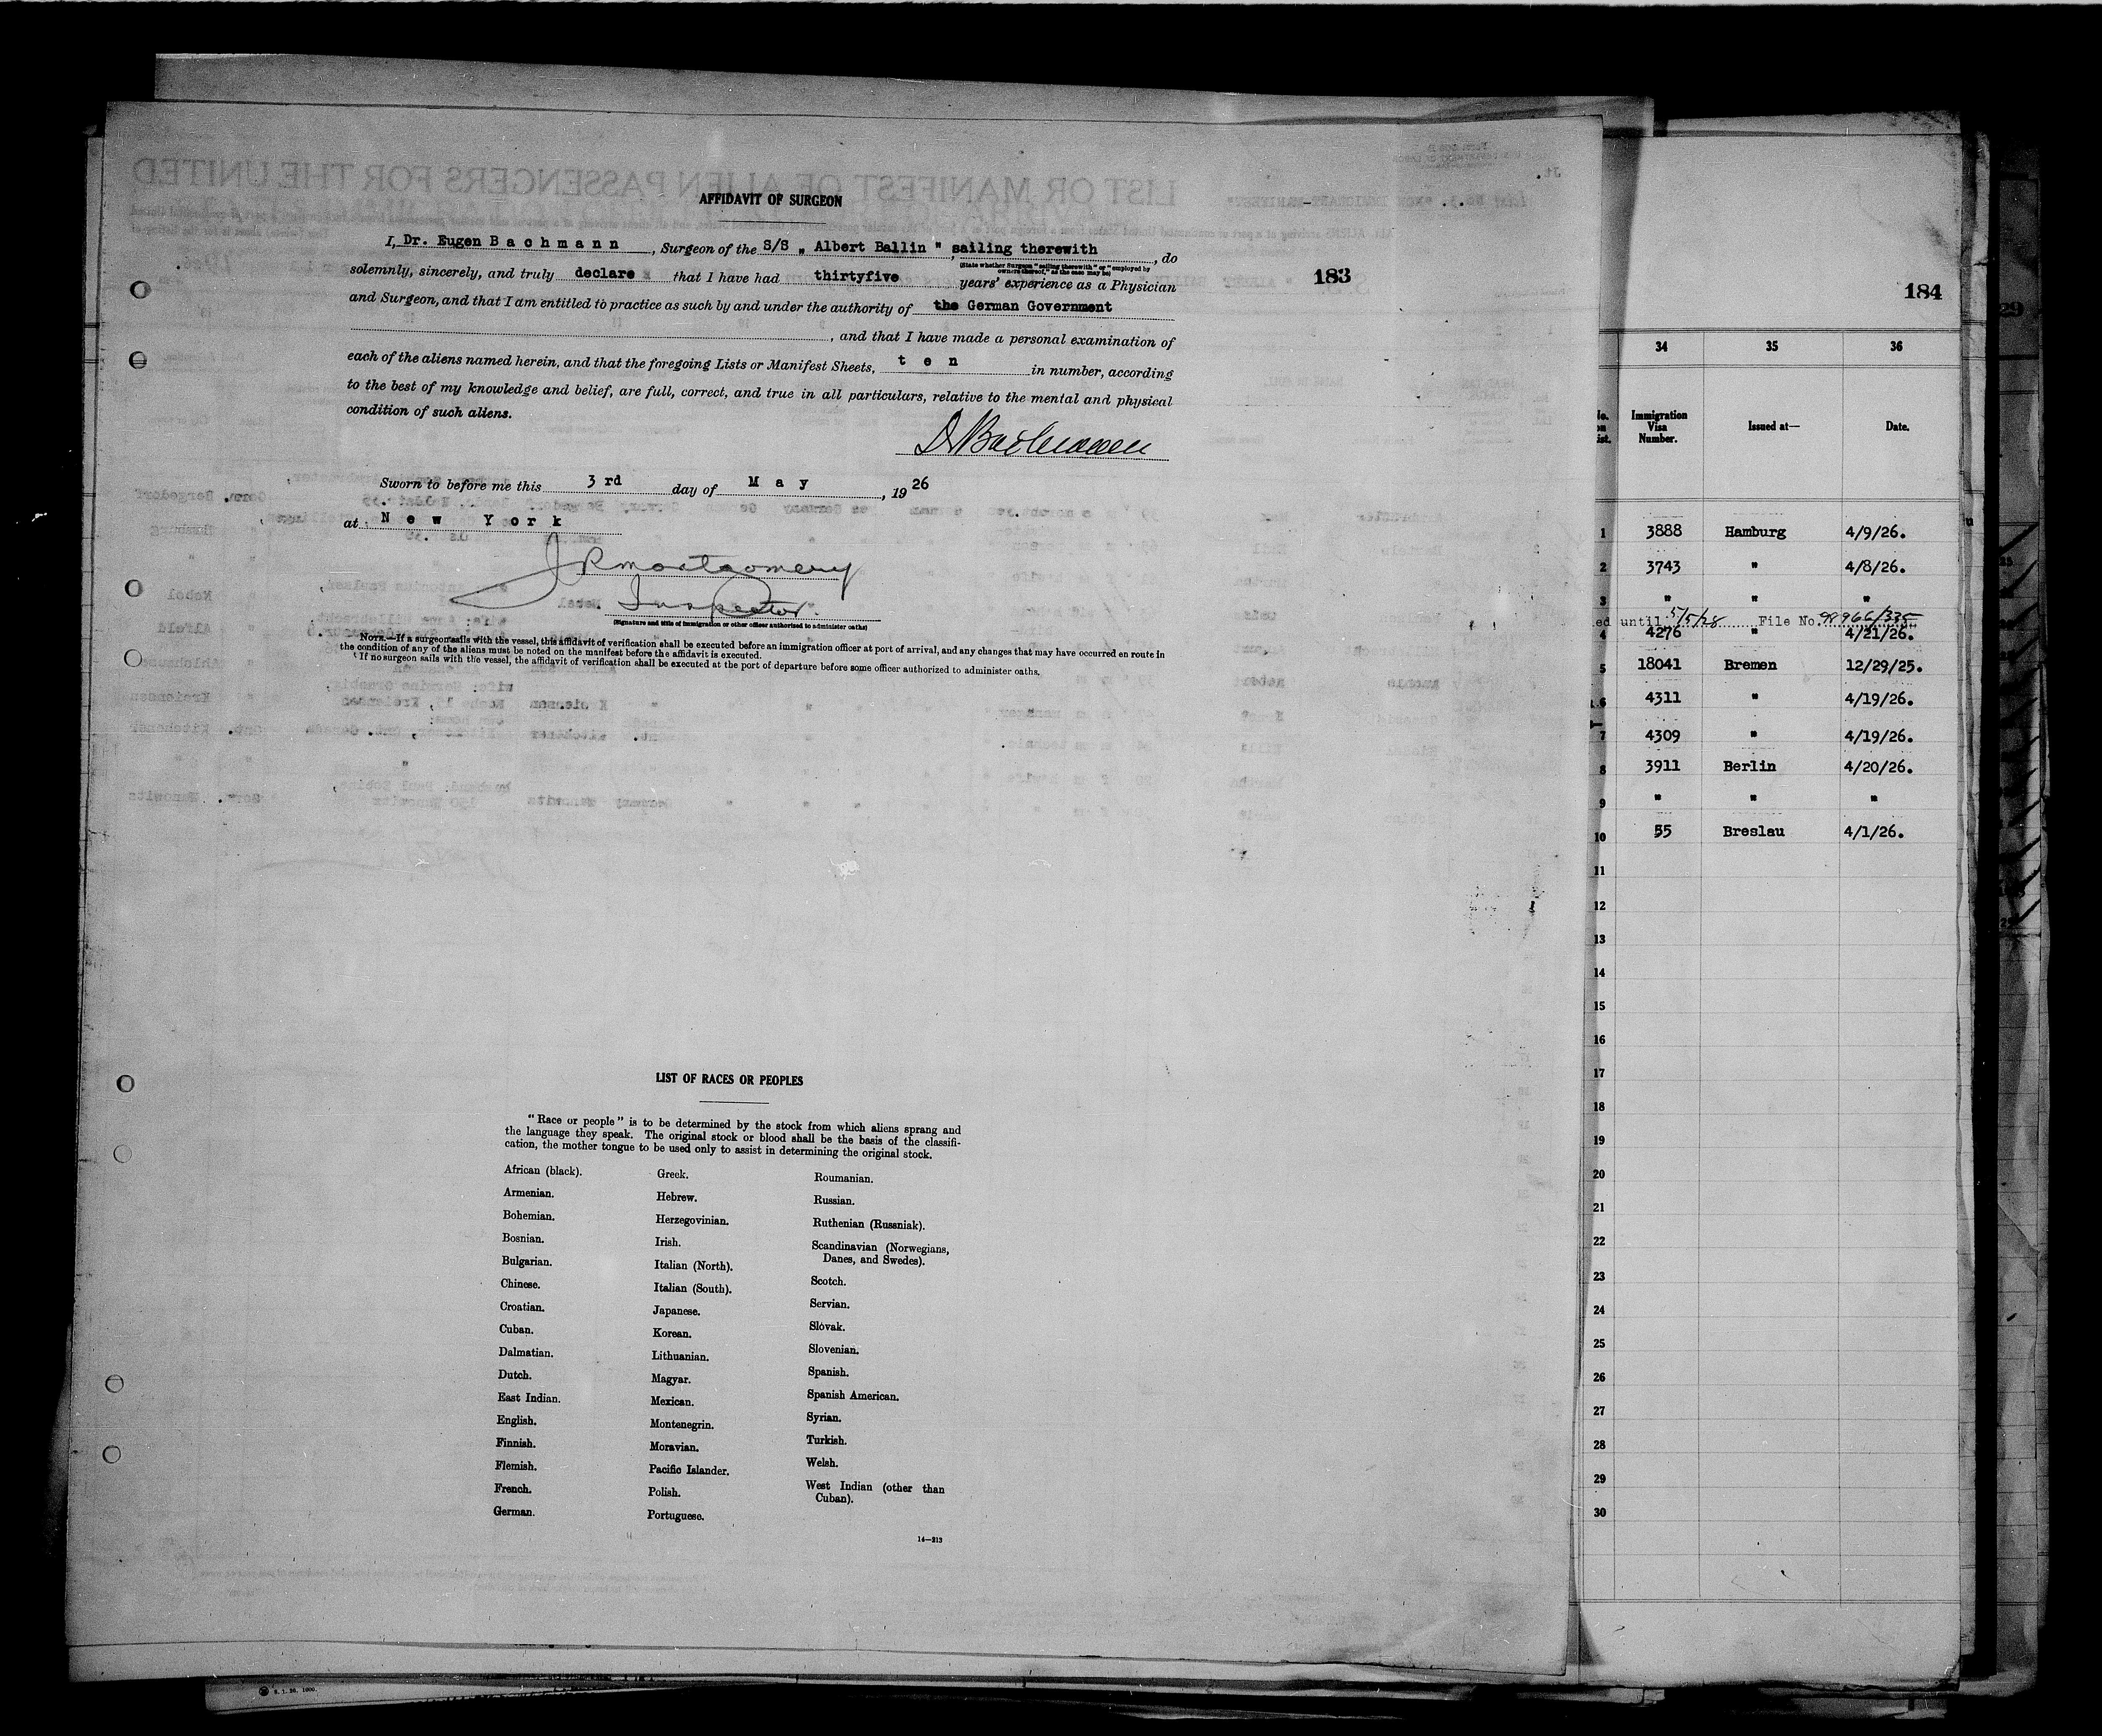 AFFIDAVIT OF SURGEON
I, Dr. Eugen B a c h m a n n , Surgeon of the S/S „ Albert Ballin " , sailing therewith , do
(State whether Surgeon "sailing therewith" or "employed by
owners thereof," as the case may be)
solemnly, sincerely, and truly declare that I have had thirtyfive years' experience as a Physician
and Surgeon, and that I am entitled to practice as such by and under the authority of the German Government
, and that I have made a personal examination of
each of the aliens named herein, and that the foregoing Lists or Manifest Sheets, t e n in number, according
to the best of my knowledge and belief, are full, correct, and true in all particulars, relative to the mental and physical
condition of such aliens.
Dr Bachmann
Sworn to before me this 3 rd day of M a y , 19 26
at N e w Y o r k
J R Montgomery
Inspector.
(Signature and title of immigration or other officer authorized to administer oaths)
NOTE.—If a surgeon sails with the vessel, this affidavit of verification shall be executed before an immigration officer at port of arrival, and any changes that may have occurred en route in
the condition of any of the aliens must be noted on the manifest before the affidavit is executed.
If no surgeon sails with the vessel, the affidavit of verification shall be executed at the port of departure before some officer authorized to administer oaths.
183
LIST OF RACES OR PEOPLES
"Race or people" is to be determined by the stock from which aliens sprang and
the language they speak. The original stock or blood shall be the basis of the classifi-
cation, the mother tongue to be used only to assist in determining the original stock.
African (black).
Armenian.
Bohemian.
Bosnian.
Bulgarian.
Chinese.
Croatian.
Cuban.
Dalmatian.
Dutch.
East Indian.
English.
Finnish.
Flemish.
French.
German.
Greek.
Hebrew.
Herzegovinian.
Irish.
Italian (North).
Italian (South).
Japanese.
Korean.
Lithuanian.
Magyar.
Mexican.
Montenegrin.
Moravian.
Pacific Islander.
Polish.
Portuguese.
Roumanian.
Russian.
Ruthenian (Russniak).
Scandinavian (Norwegians,
Danes, and Swedes).
Scotch.
Servian.
Slovak.
Slovenian.
Spanish.
Spanish American.
Syrian.
Turkish.
Welsh.
West Indian (other than
Cuban).
14—213
184
34 35 36
Immigration
Visa
Number.
Issued at—
Date.
1 3888 Hamburg 4/9/26.
2 3743 " 4/8/26.
3 " " "
ed until 5/5/28 File No. 98966/335
4 4276 " 4/21/26.
5 18041 Bremen 12/29/25.
6 4311 " 4/19/26.
7 4309 " 4/19/26.
8 3911 Berlin 4/20/26.
9 " " "
10 55 Breslau 4/1/26.
11
12
13
14
15
16
17
18
19
20
21
22
23
24
25
26
27
28
29
30
29